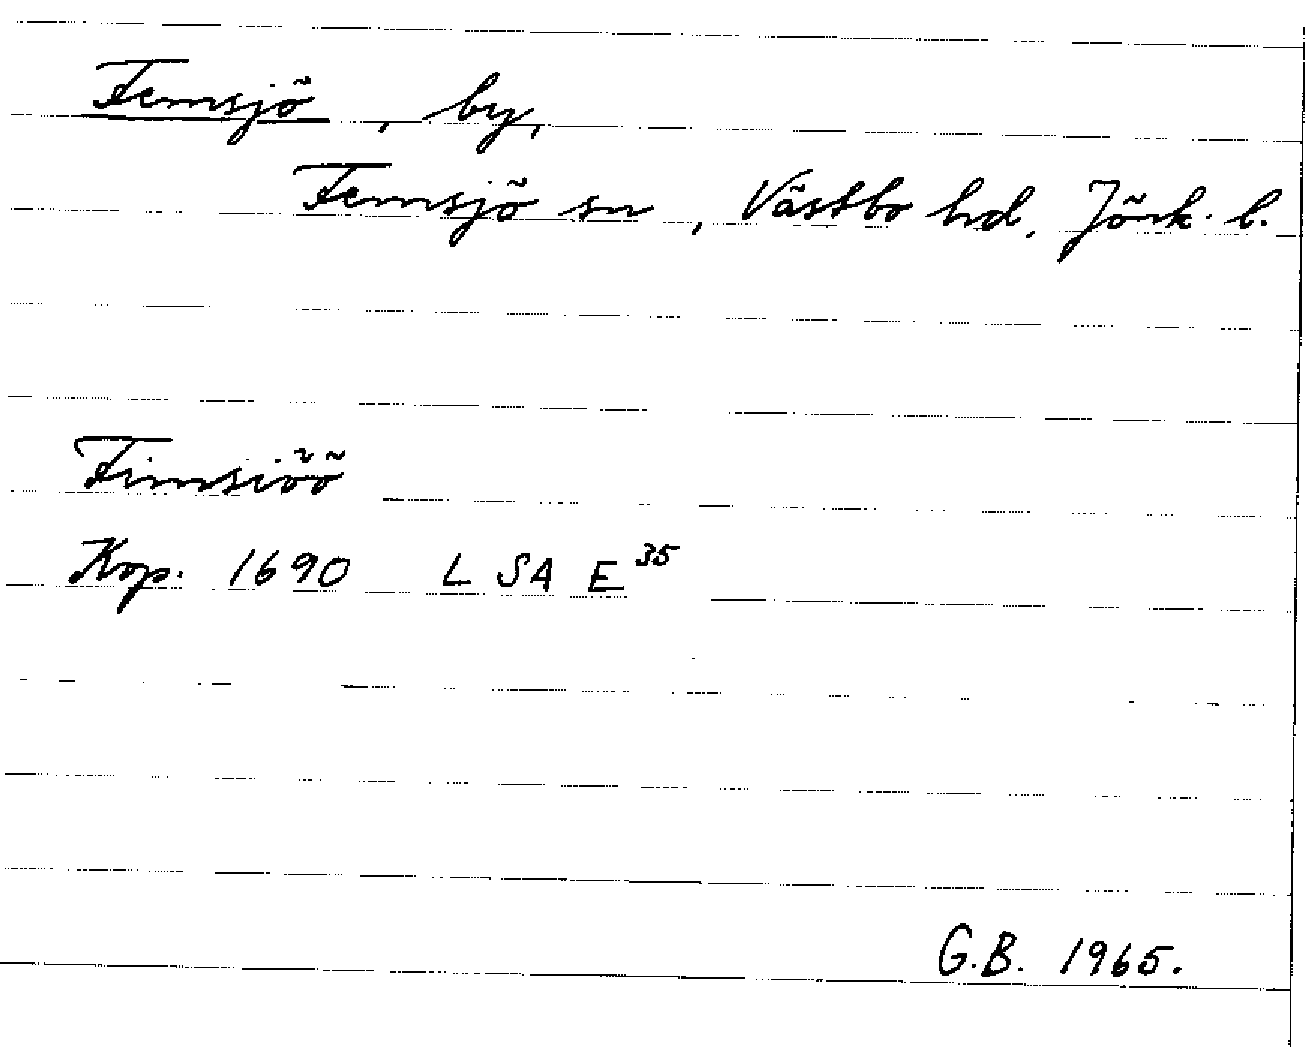 Femsjö, by,
Femsjö sn, Västbo hd, Jönk. l.
Fimsiöö
Kop. 1690 L S A E 35
G.B. 1965.